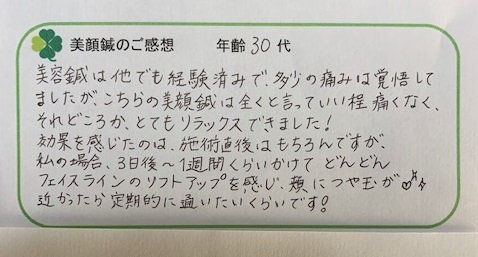 美顔鍼のご感想 年齢30代
美容鍼は他でも経験済みで、多少の痛みは覚悟して
ましたが、こちらの美顔鍼は全くと言っていい程痛くなく、
それどころか、とてもリラックスできました!
効果を感じたのは、施術直後はもちろんですが、
私の場合、3日後〜1週間くらいかけて どんどん
フェイスラインのソフトアップを感じ、頬につや玉が♡
近かったら定期的に通いたいくらいです!